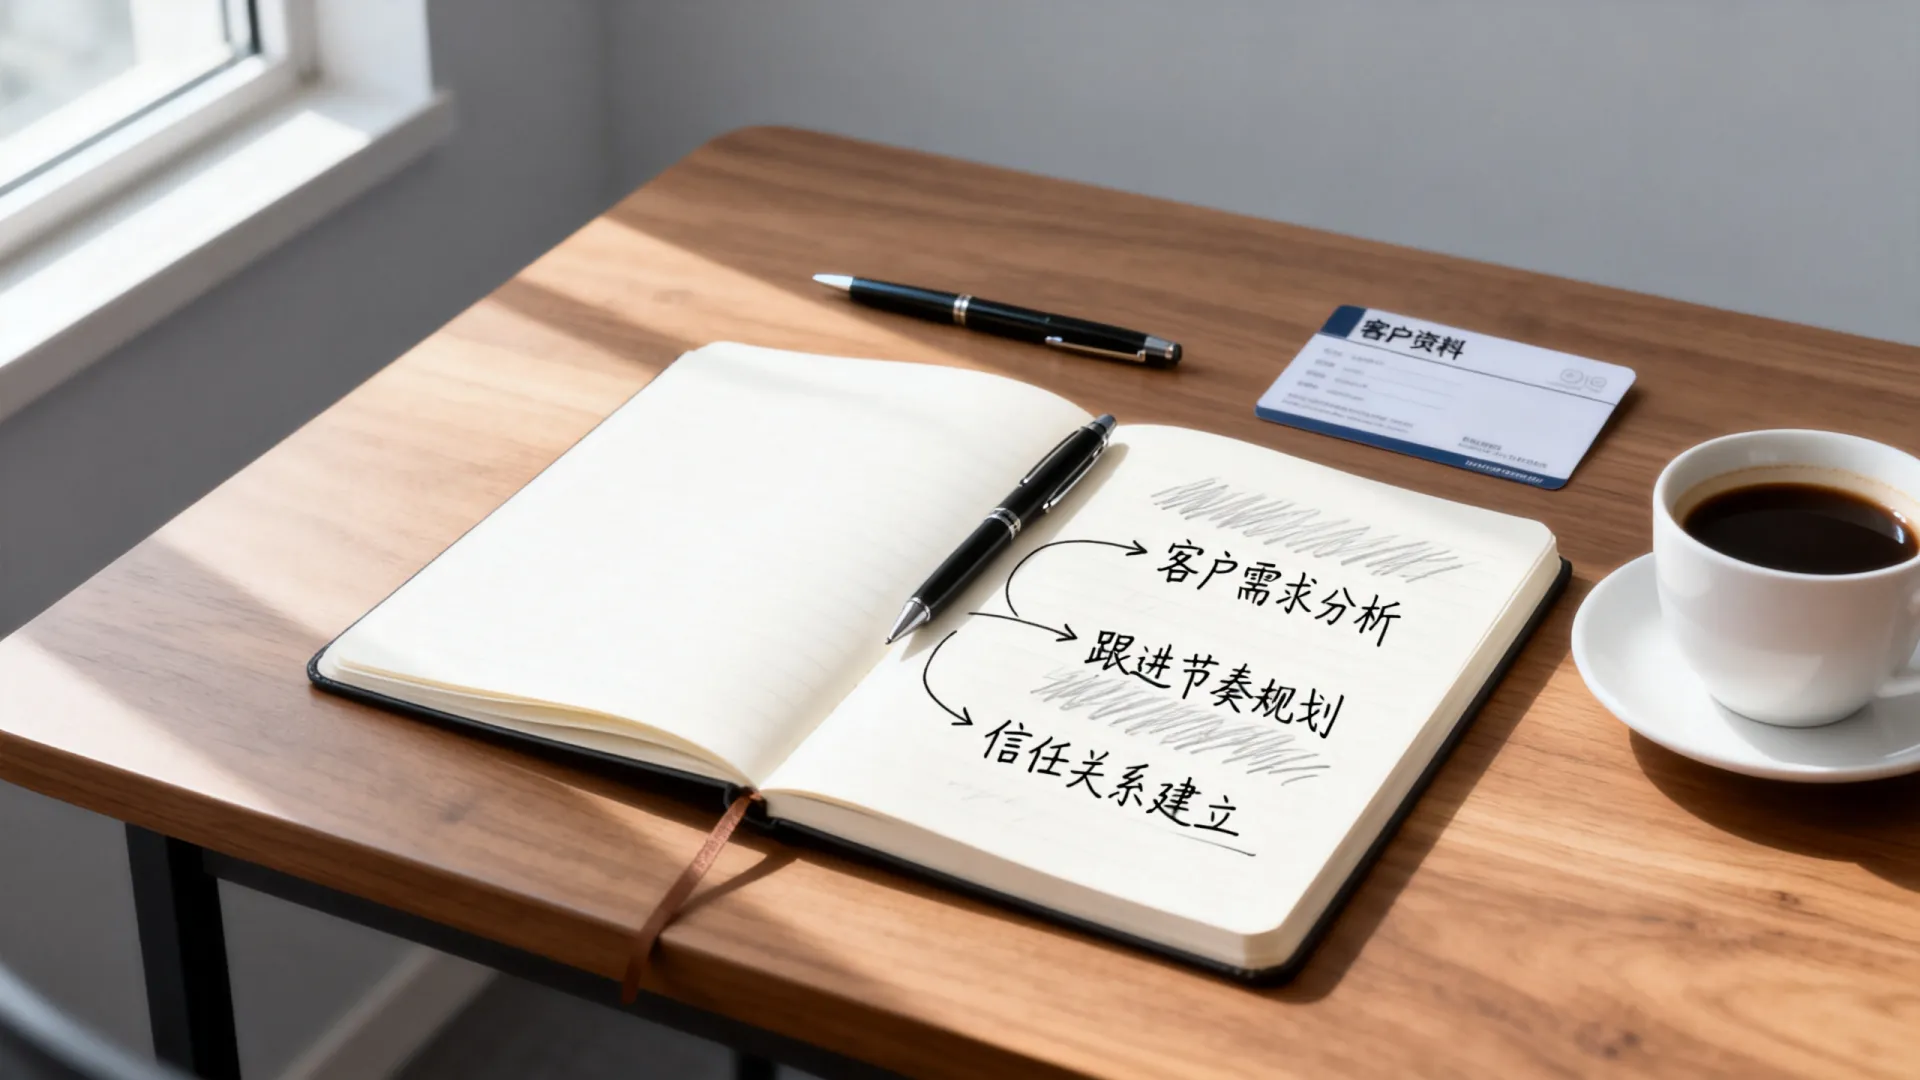 客户资料
客户需求分析
跟进节奏规划
信任关系建立